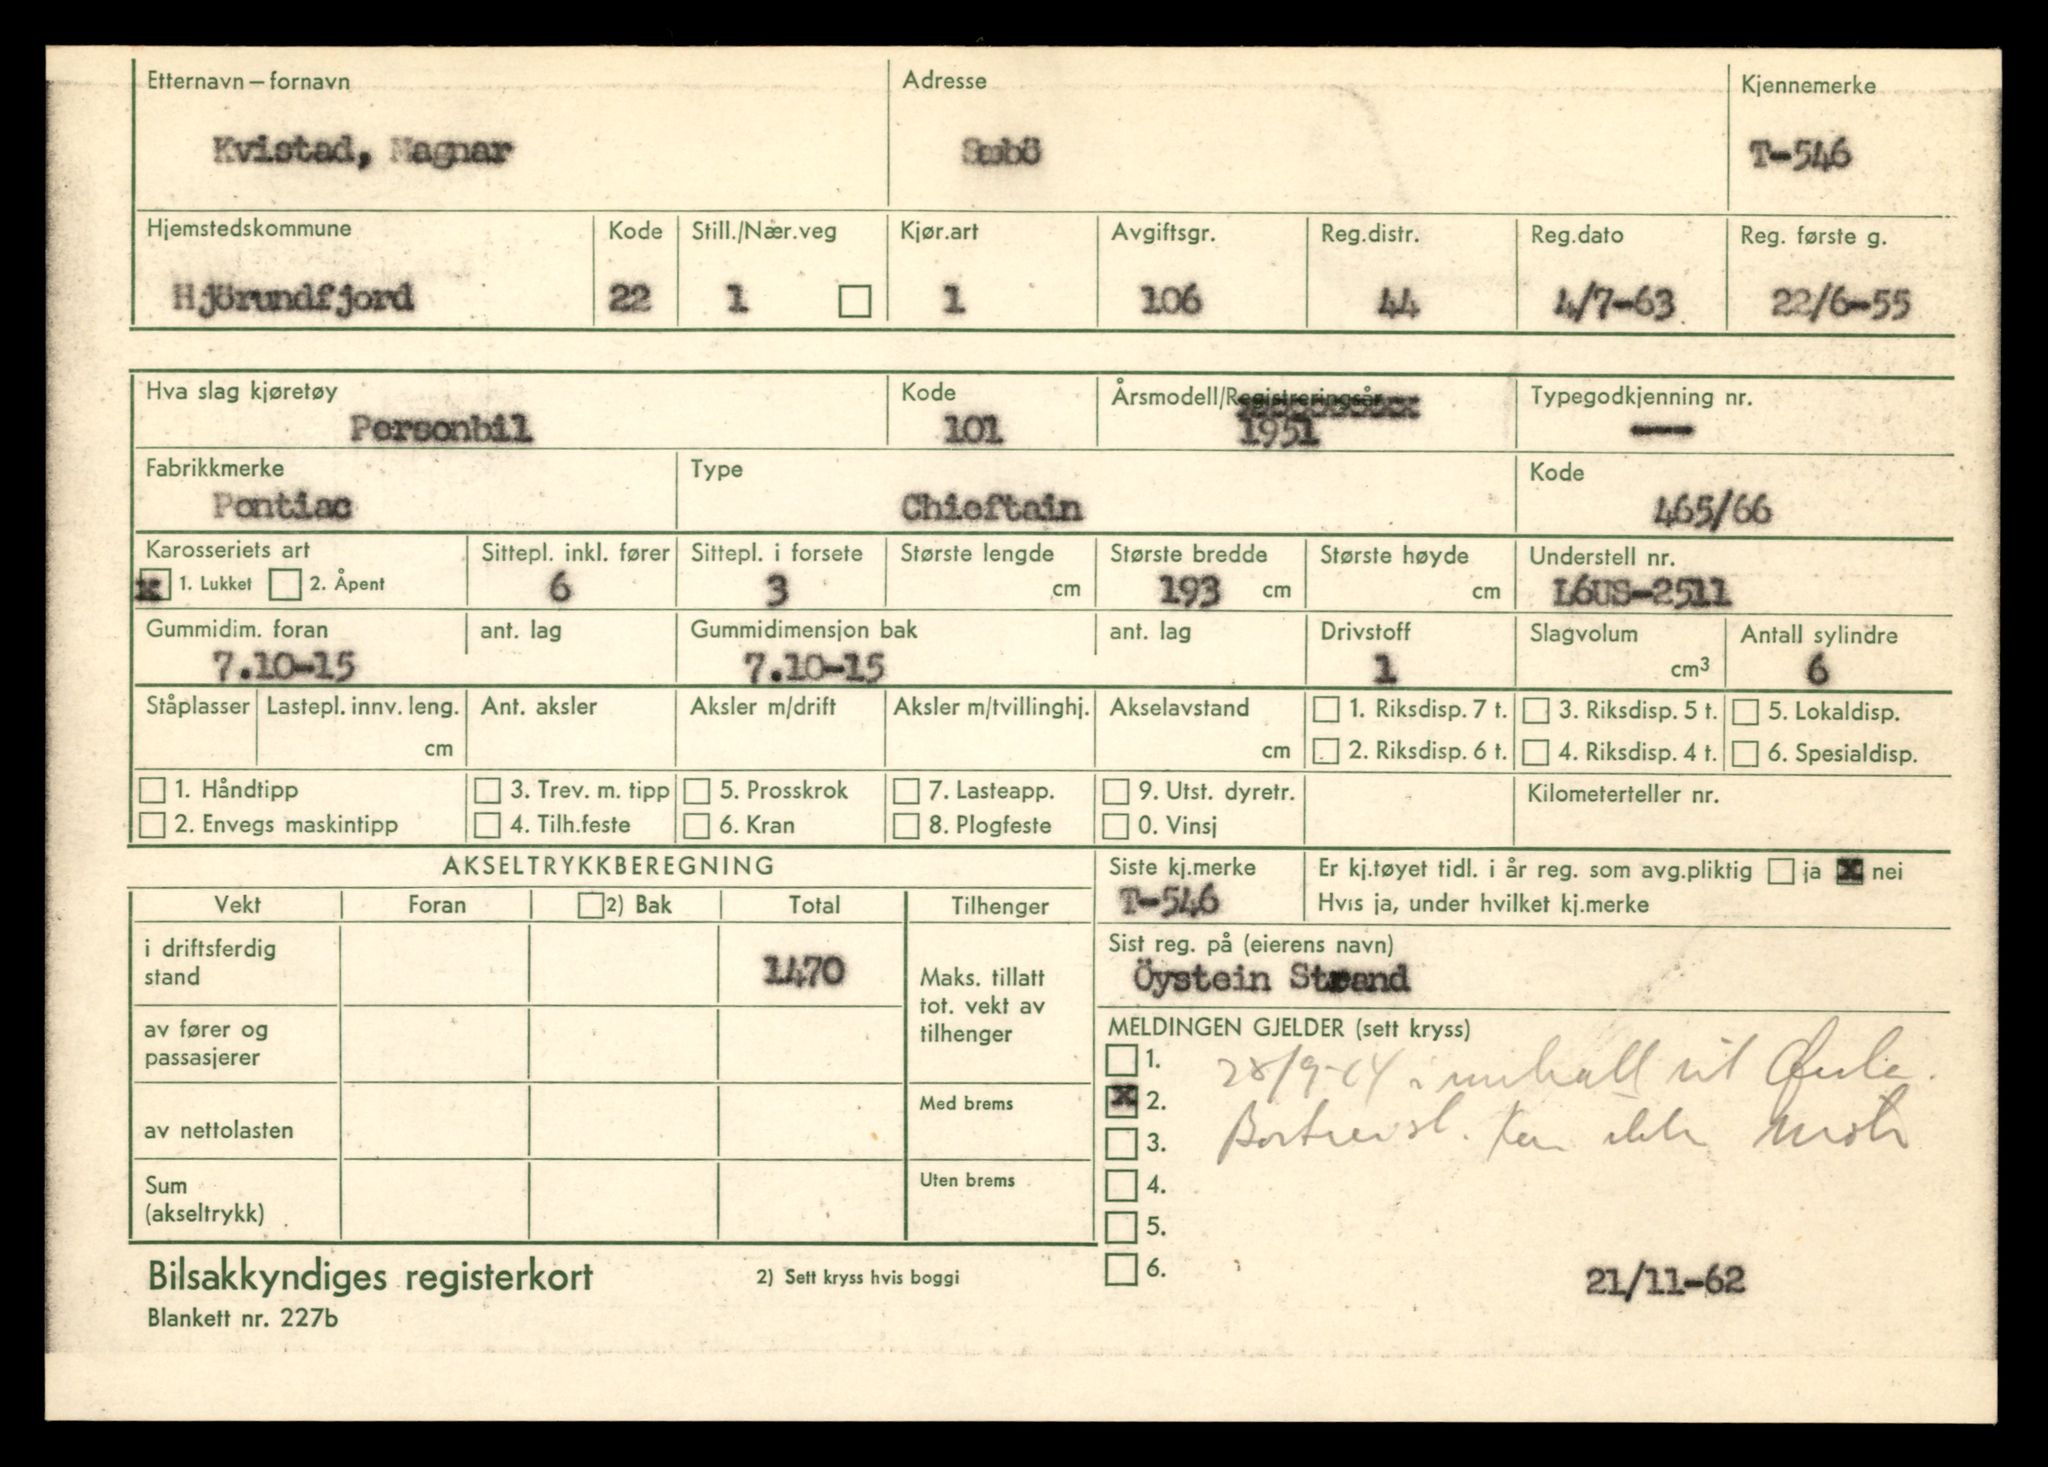 Etternavn – fornavn Adresse Kjennemerke
Kvistad, Magnar Sæbö T-546
Hjemstedskommune Kode Still./Nær.veg Kjør.art Avgiftsgr. Reg.distr. Reg.dato Reg. første g.
Hjörundfjord 22 1 1 106 44 4/7-63 22/6-55
Hva slag kjøretøy Kode Årsmodell/Registreringsår Typegodkjenning nr.
Personbil 101 1951 ----
Fabrikkmerke Type Kode
Pontiac Chieftain 465/66
Karosseriets art Sittepl. inkl. fører Sittepl. i forsete Største lengde Største bredde Største høyde Understell nr.
x 1. Lukket 2. Åpent 6 3 cm 193 cm cm L6US-2511
Gummidim. foran ant. lag Gummidimensjon bak ant. lag Drivstoff Slagvolum Antall sylindre
7.10-15 7.10-15 1 cm³ 6
Ståplasser Lastepl. innv. leng. Ant. aksler Aksler m/drift Aksler m/tvillinghj. Akselavstand 1. Riksdisp. 7 t. 3. Riksdisp. 5 t. 5. Lokaldisp.
cm cm 2. Riksdisp. 6 t. 4. Riksdisp. 4 t. 6. Spesialdisp.
1. Håndtipp 3. Trev. m. tipp 5. Prosskrok 7. Lasteapp. 9. Utst. dyretr. Kilometerteller nr.
2. Envegs maskintipp 4. Tilh.feste 6. Kran 8. Plogfeste 0. Vinsj
AKSELTRYKKBEREGNING Siste kj.merke Er kj.tøyet tidl. i år reg. som avg.pliktig ja x nei
T-546 Hvis ja, under hvilket kj.merke
Vekt Foran 2) Bak Total Tilhenger
Sist reg. på (eierens navn)
i driftsferdig
stand 1470 Maks. tillatt
tot. vekt av
tilhenger
Öystein Strand
MELDINGEN GJELDER (sett kryss)
av fører og
passasjerer
1. 28/9-64 til
x 2. Med brems
3.
av nettolasten
4.
Sum
(akseltrykk) Uten brems
5.
6. 21/11-62
Bilsakkyndiges registerkort 2) Sett kryss hvis boggi
Blankett nr. 227b